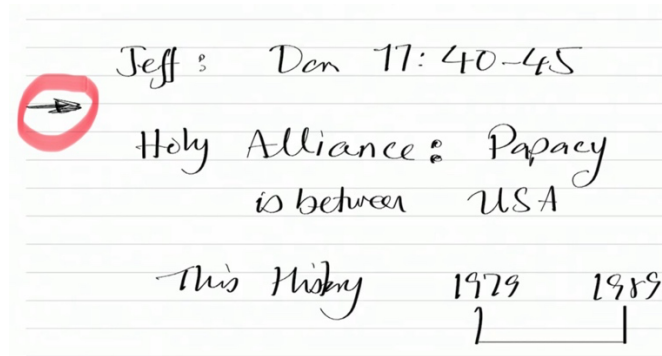 Jeff: Dan 11:40-45
Holy Alliance: Papacy
is between USA
This History 1979 1989